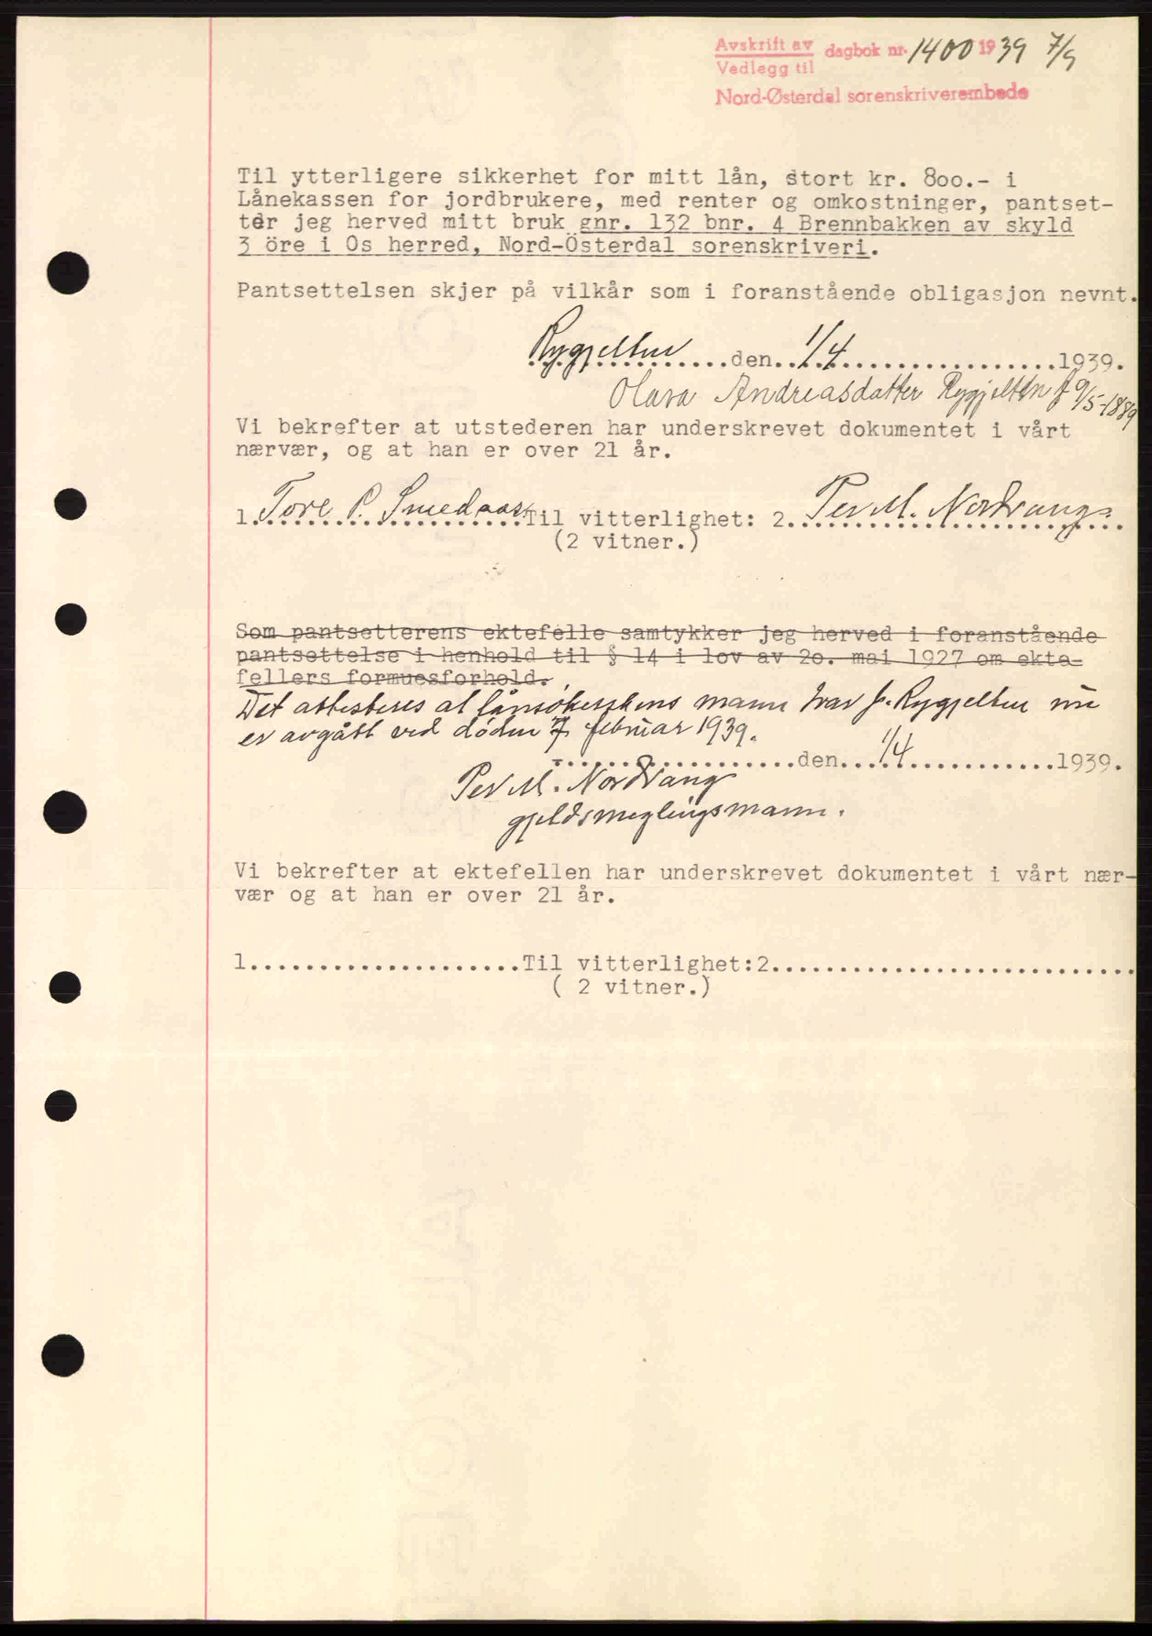 Avskrift av dagbok nr. 1400 1939 7/9
Vedlegg til
Nord-Østerdal sorenskriverembede
Til ytterligere sikkerhet for mitt lån, stort kr. 800.- i
Lånekassen for jordbrukere, med renter og omkostninger, pantset-
tér jeg herved mitt bruk gnr. 132 bnr. 4 Brennbakken av skyld
3 öre i Os herred, Nord-Österdal sorenskriveri.
Pantsettelsen skjer på vilkår som i foranstående obligasjon nevnt.
Rygjelten den 1/4 1939.
Olava Andreasdatter Rygjelten f 9/5-1889
Vi bekrefter at utstederen har underskrevet dokumentet i vårt
nærvær, og at han er over 21 år.
1. Tore P. Smedaas Til vitterlighet: 2. Per M. Nordvang
(2 vitner.)
Som pantsetterens ektefelle samtykker jeg herved i foranstående
pantsettelse i henhold til § 14 i lov av 20. mai 1927 om ekte-
fellers formuesforhold.
Det attesteres at lånsökerskens mann Ivar J. Rygjelten nu
er avgått ved döden 7 februar 1939.
den 1/4 1939.
Per M. Nordvang
gjeldsmeglingsmann.
Vi bekrefter at ektefellen har underskrevet dokumentet i vårt nær-
vær og at han er over 21 år.
1....................Til vitterlighet:2...........................
( 2 vitner.)